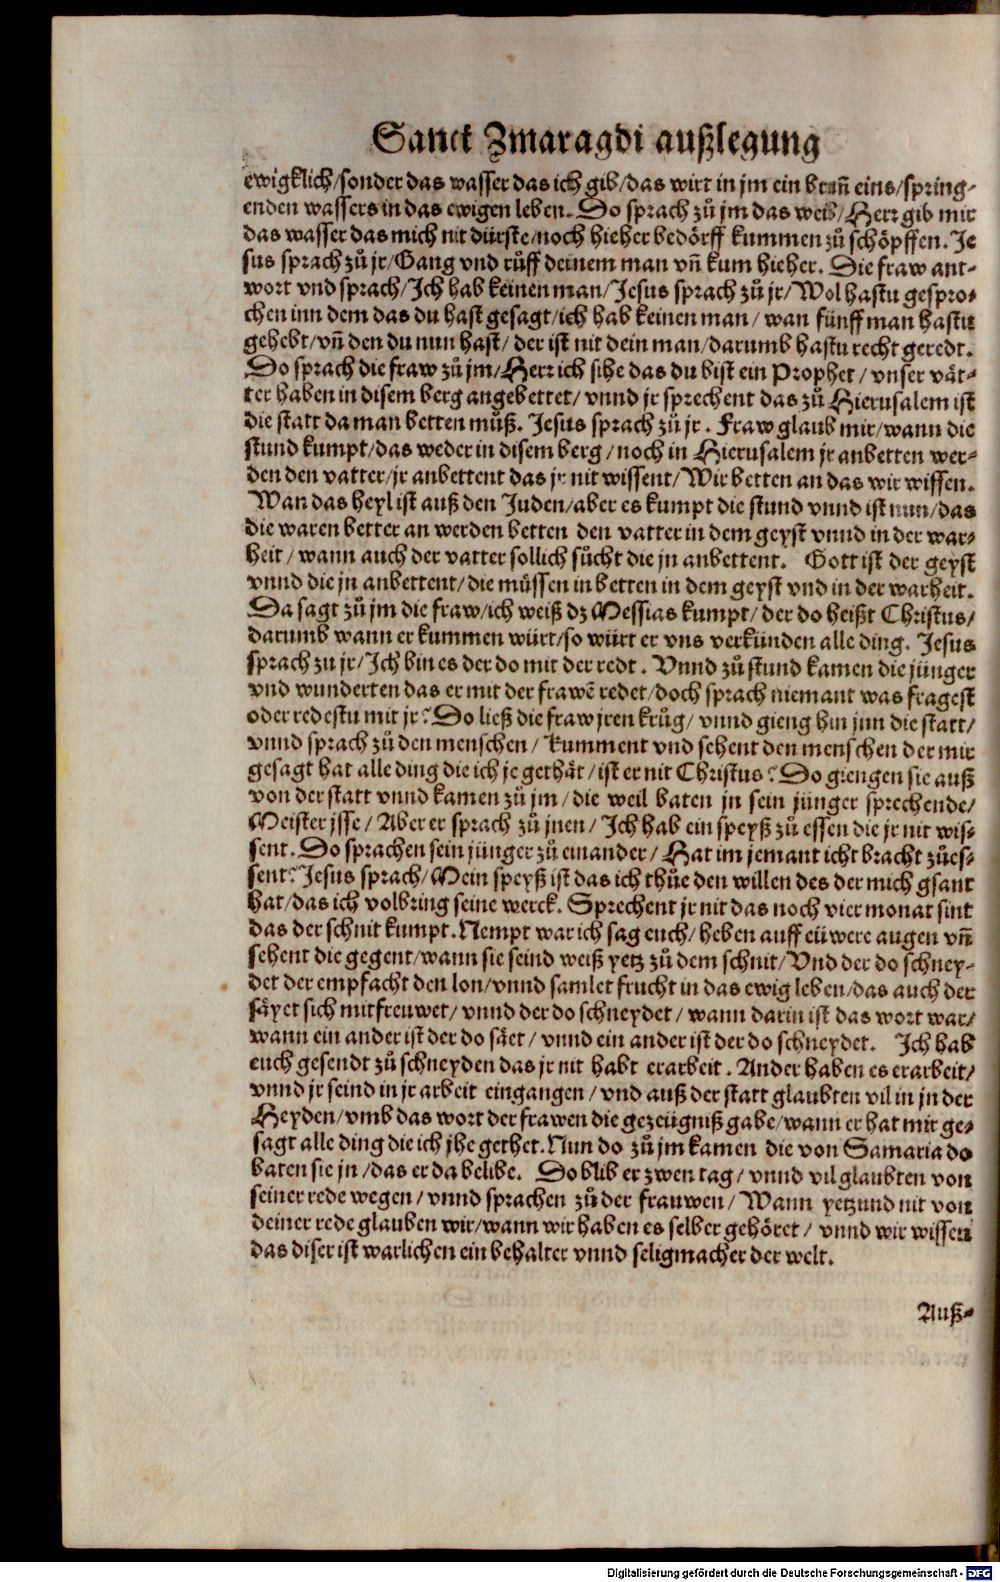 Sanct Zmaragdi außlegung
ewigklich/sonder das wasser das ich gib/das wirt in jm ein brañ eins/spring-
enden wassers in das ewigen leben. So sprach zů jm das weib/Herr gib mir
das wasser das mich nit dürste/noch hieher bedörff kummen zů schöpffen. Je
sus sprach zů jr/Gang vnd rüff deinem man vñ kum hieher. Die fraw ant-
wort vnd sprach/Ich hab keinen man/Jesus sprach zů jr/Wol hastu gespro-
chen inn dem das du hast gesagt/ich hab keinen man/wan fünff man hastu
gehebt/vñ den du nun hast/der ist nit dein man/darumb hastu recht geredt.
Do sprach die fraw zů jm/Herr ich sihe das du bist ein Prophet/vnser vät-
ter haben in disem berg angebettet/vnnd jr sprechent das zů Hierusalem ist
die statt da man betten můß. Jesus sprach zů jr. Fraw glaub mir/wann die
stund kumpt/das weder in disem berg/noch in Hierusalem jr anbetten wer-
den den vatter/jr anbettent das jr nit wissent/Wir betten an das wir wissen.
Wan das heyl ist auß den Juden/aber es kumpt die stund vnnd ist nun/das
die waren better an werden betten den vatter in dem geyst vnnd in der war-
heit/wann auch der vatter sollich sůcht die jn anbettent. Gott ist der geyst
vnnd die jn anbettent/die müssen in betten in dem geyst vnd in der warheit.
Da sagt zů jm die fraw/ich weiß dz Messias kumpt/der do heißt Christus/
darumb wann er kummen würt/so würt er vns verkünden alle ding. Jesus
sprach zu jr/Ich bin es der do mit der redt. Vnnd zů stund kamen die jünger
vnd wunderten das er mit der frawē redet/doch sprach niemant was fragest
oder redestu mit jr? Do ließ die fraw jren krůg/vnnd gieng hin jnn die statt/
vnnd sprach zů den menschen/Kumment vnd sehent den menschen der mir
gesagt hat alle ding die ich je gethät/ist er nit Christus? Do giengen sie auß
von der statt vnnd kamen zů jm/die weil baten jn sein jünger sprechende/
Meister jsse/Aber er sprach zů jnen/Ich hab ein speyß zů essen die jr nit wis-
sent. Do sprachen sein jünger zů einander/Hat im jemant icht bracht zůes-
sent? Jesus sprach/Mein speyß ist das ich thüe den willen des der mich gsant
hat/das ich volbring seine werck. Sprechent jr nit das noch vier monat sint
das der schnit kumpt. Nempt war ich sag euch/heben auff eüwere augen vñ
sehent die gegent/wann sie seind weiß yetz zů dem schnit/Vnd der do schney-
det der empfacht den lon/vnnd samlet frucht in das ewig leben/das auch der
säyet sich mitfreuwet/vnnd der do schneydet/wann darin ist das wort war/
wann ein ander ist der do säet/vnnd ein ander ist der do schneydet. Ich hab
euch gesendt zů schneyden das jr nit habt erarbeit. Ander haben es erarbeit/
vnnd jr seind in jr arbeit eingangen/vnd auß der statt glaubten vil in jn der
Heyden/vmb das wort der frawen die gezeügniß gabe/wann er hat mir ge-
sagt alle ding die ich jhe gethet. Nun do zů jm kamen die von Samaria do
baten sie jn/das er da belibe. Do blib er zwen tag/vnnd vil glaubten von
seiner rede wegen/vnnd sprachen zů der frauwen/Wann yetzund nit von
deiner rede glauben wir/wann wir haben es selber gehöret/vnnd wir wissen
das diser ist warlichen ein behalter vnnd seligmacher der welt.
Auß-
Digitalisierung gefördert durch die Deutsche Forschungsgemeinschaft - DFG